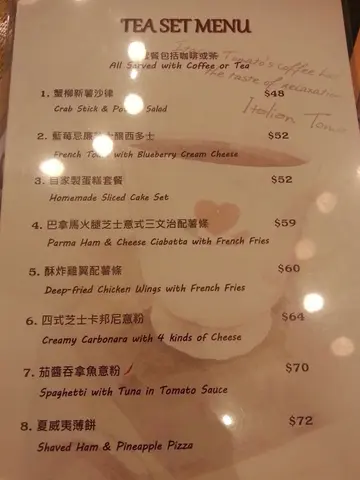 TEA SET MENU
餐包括咖啡或茶
All Served with Coffee or Tea
Tomato's coffee has
the taste of
Italian Tomato
1. 蟹柳新薯沙律 $48
Crab Stick & Potato Salad
2. 藍莓忌廉芝士醬西多士 $52
French Toast with Blueberry Cream Cheese
3. 自家製蛋糕套餐 $52
Homemade Sliced Cake Set
4. 巴拿馬火腿芝士意式三文治配薯條 $59
Parma Ham & Cheese Ciabatta with French Fries
5. 酥炸雞翼配薯條 $60
Deep-fried Chicken Wings with French Fries
6. 四式芝士卡邦尼意粉 $64
Creamy Carbonara with 4 kinds of Cheese
7. 茄醬吞拿魚意粉 $70
Spaghetti with Tuna in Tomato Sauce
8. 夏威夷薄餅 $72
Shaved Ham & Pineapple Pizza